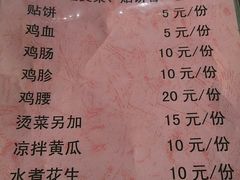 贴饼 5元/份
鸡血 5元/份
鸡肠 10元/份
鸡胗 10元/份
鸡腰 20元/份
烫菜另加 15元/份
凉拌黄瓜 10元/份
水煮花生 10元/份